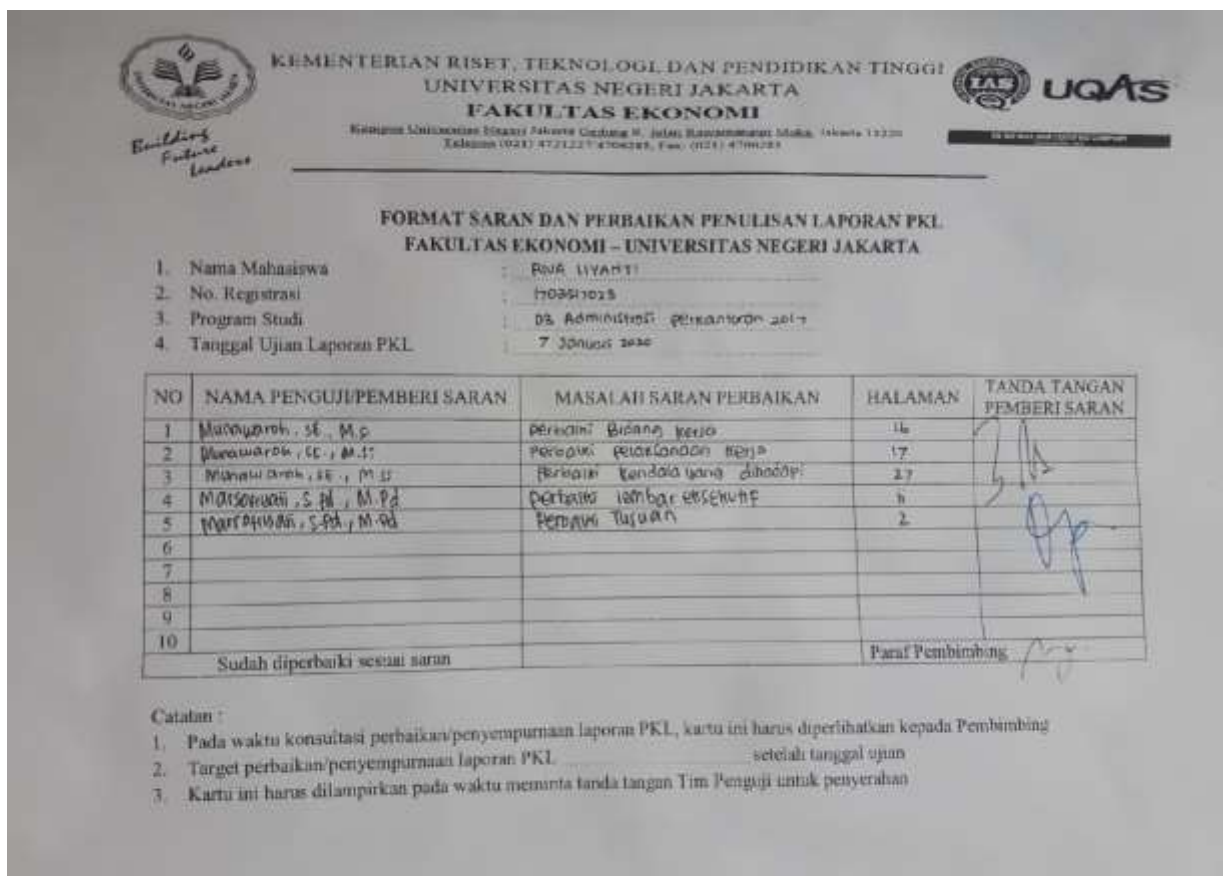 KEMENTERIAN RISET, TEKNOLOGI, DAN PENDIDIKAN TINGGI
UNIVERSITAS NEGERI JAKARTA
FAKULTAS EKONOMI
Kampus Universitas Negeri Jakarta Gedung R, Jalan Rawamangun Muka, Jakarta 13220
Telepon (021) 4721227/4706285, Fax: (021) 4706285
Building
Future
Leaders
UQAS
FORMAT SARAN DAN PERBAIKAN PENULISAN LAPORAN PKL
FAKULTAS EKONOMI – UNIVERSITAS NEGERI JAKARTA
1. Nama Mahasiswa :
2. No. Registrasi :
3. Program Studi : D3 Administrasi perkantoran 2017
4. Tanggal Ujian Laporan PKL : 7 Januari 2020
NO NAMA PENGUJI/PEMBERI SARAN MASALAH SARAN PERBAIKAN HALAMAN TANDA TANGAN PEMBERI SARAN
1 Munawaroh, SE, perbaiki Bidang kerja 16
2 Munawaroh, SE, M.Si perbaiki pelaksanaan kerja 17
3 Munawaroh, SE, M.Si perbaiki kendala yang dihadapi 27
4 Marsofiyati, S.Pd, M.Pd perbaiki lembar eksekutif
5 Marsofiyati, S.Pd, M.Pd perbaiki Tujuan 2
6
7
8
9
10
Sudah diperbaiki sesuai saran Paraf Pembimbing
Catatan :
1. Pada waktu konsultasi perbaikan/penyempurnaan laporan PKL, kartu ini harus diperlihatkan kepada Pembimbing
2. Target perbaikan/penyempurnaan laporan PKL setelah tanggal ujian
3. Kartu ini harus dilampirkan pada waktu meminta tanda tangan Tim Penguji untuk penyerahan